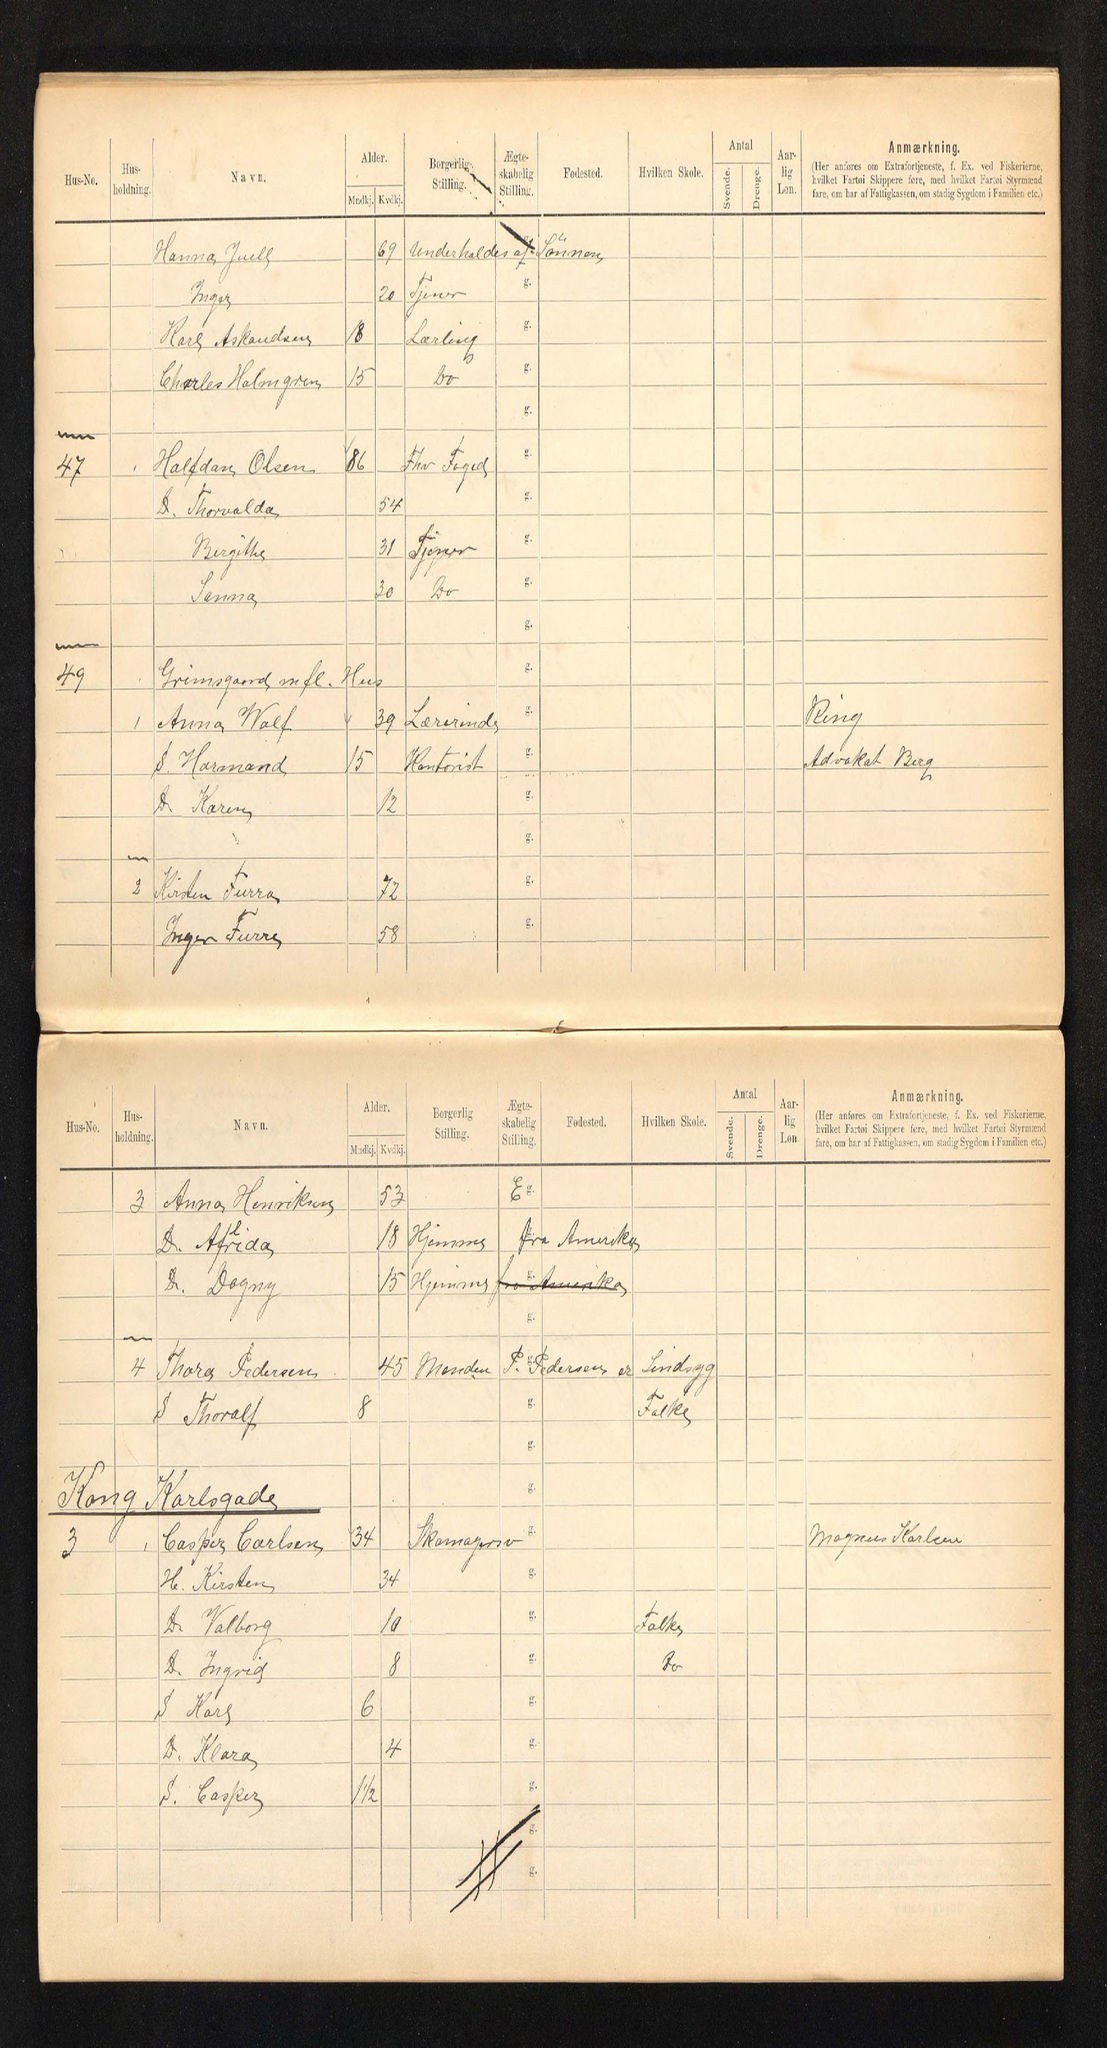 Hus-No. Hus-holdning. Navn. Alder. Mndkj. Kvdkj. Borgerlig Stilling. Ægte-skabelig Stilling. Fødested. Hvilken Skole. Antal Svende. Drenge. Aar-lig Løn. Anmærkning.
(Her anføres om Extrafortjeneste, f. Ex. ved Fiskerierne, hvilket Fartøi Skippere føre, med hvilket Fartøi Styrmænd fare, om har af Fattigkassen, om stadig Sygdom i Familien etc.)
Hanna Juell 69 Underholdes af Sønnen
Inger 20 Tjener g.
Karl Askandsen 18 Lærling g.
Charles Holmgren 15 Do g.
g.
47 1 Halfdan Olsen 86 Fhv Foged g.
D. Thorvalda 54 g.
Bergithe 31 Tjener g.
Sanna 30 Do g.
g.
49 Grimsgaard mfl. Hus g.
1 Anna Wolf 39 Lærerinde g. Ring
S. Harmand 15 Kontorist g. Advokat Berg
D. Karen 12 g.
g.
2 Kirsten Furra 72 g.
Inger Furre 58 g.
Hus-No. Hus-holdning. Navn. Alder. Mndkj. Kvdkj. Borgerlig Stilling. Ægte-skabelig Stilling. Fødested. Hvilken Skole. Antal Svende. Drenge. Aar-lig Løn. Anmærkning.
(Her anføres om Extrafortjeneste, f. Ex. ved Fiskerierne, hvilket Fartøi Skippere føre, med hvilket Fartøi Styrmænd fare, om har af Fattigkassen, om stadig Sygdom i Familien etc.)
3 Anna Henriksen 53 E g.
D. Alfrida 18 Hjemme g. fra Amerika
D. Dagny 15 Hjemme g. fra Amerika
g.
4 Thora Pedersen 45 Manden P. Pedersen er Sindsyg
S Thoralf 8 g. Folke
g.
Kong Karlsgade g.
3 1 Casper Carlsen 34 Skomagersv g. Magnus Karlsen
H. Kirsten 34 g.
D. Valborg 10 g. Folke
D. Ingrid 8 g. Do
S Karl 6 g.
D. Klara 4 g.
S. Casper 1 1/2 g.
g.
g.